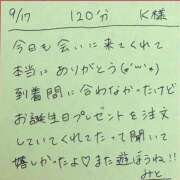 9/17 120分 K様
今日も会いに来てくれて
本当にありがとう(*'ω'*)
到着間に合わなかったけど
お誕生日プレゼントを注文
していてくれてたって聞いて
嬉しかったよ♡また遊ぼうね!!
みと